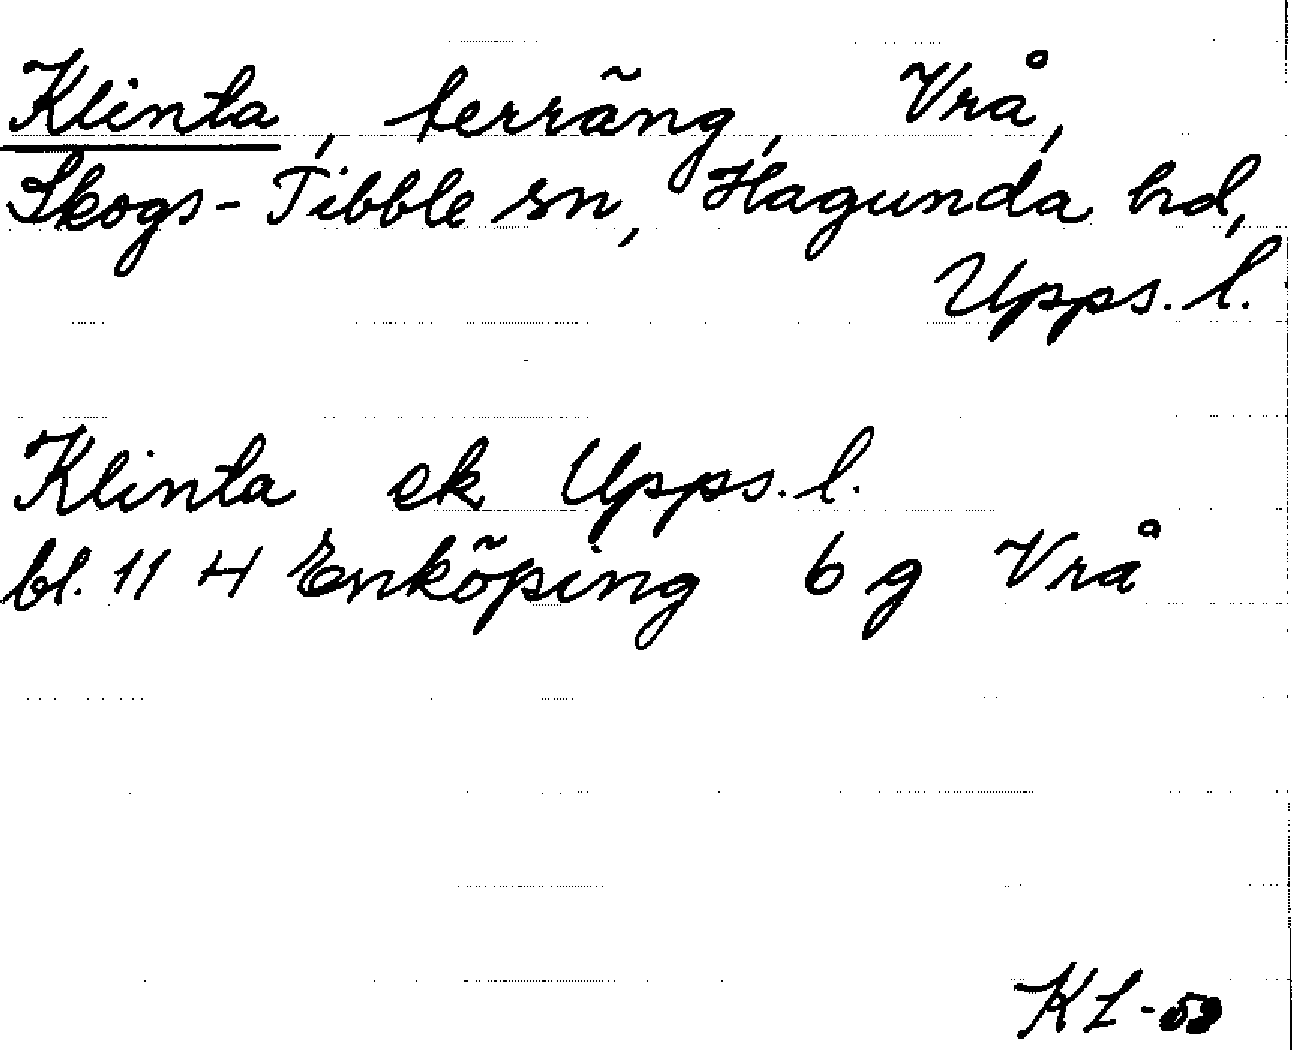 Klinta, terräng, Vrå,
Skogs-Tibble sn, Hagunda hd,
Upps. l.
Klinta ek Upps. l.
bl. 11 H Enköping 6 g Vrå
KL-